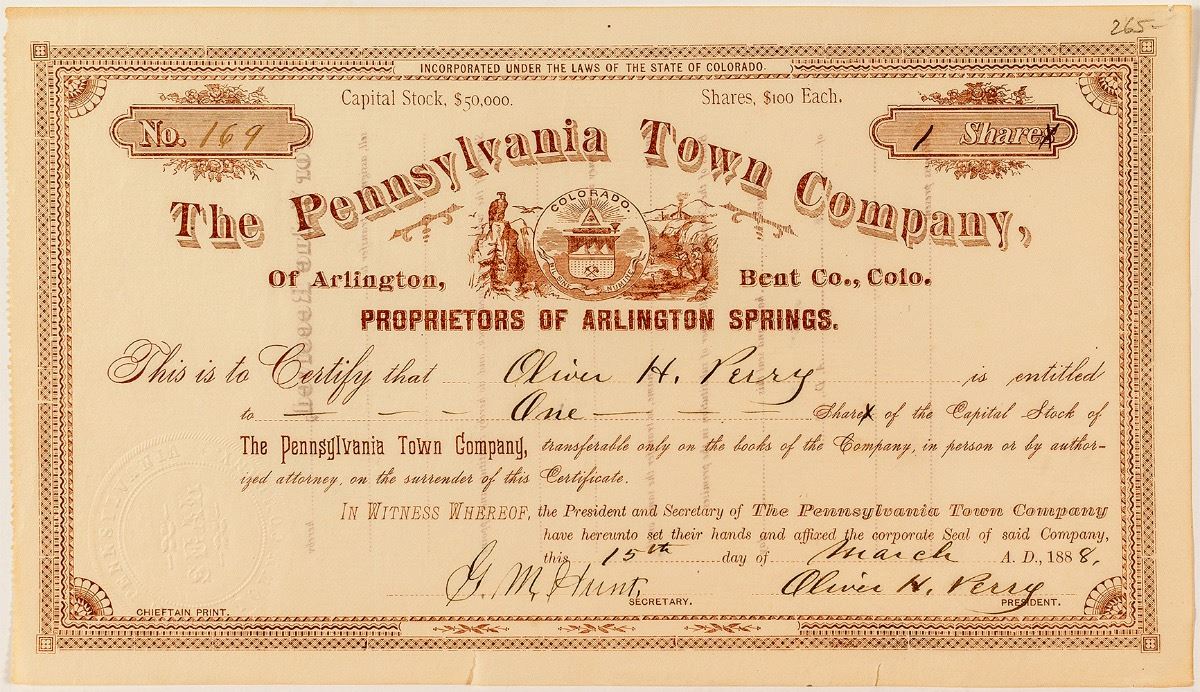 265-
INCORPORATED UNDER THE LAWS OF THE STATE OF COLORADO.
Capital Stock, $50,000. Shares, $100 Each.
No. 169
1 Shares
The Pennsylvania Town Company,
COLORADO
Of Arlington, Bent Co., Colo.
PROPRIETORS OF ARLINGTON SPRINGS.
This is to Certify that Oliver H. Perry is entitled
to One Shares of the Capital Stock of
The Pennsylvania Town Company, transferable only on the books of the Company, in person or by author-
ized attorney, on the surrender of this Certificate.
IN WITNESS WHEREOF, the President and Secretary of The Pennsylvania Town Company
have hereunto set their hands and affixed the corporate Seal of said Company,
this 15th day of March A. D., 1888.
G. M. Hunt, Oliver H. Perry
SECRETARY. PRESIDENT.
CHIEFTAIN PRINT.